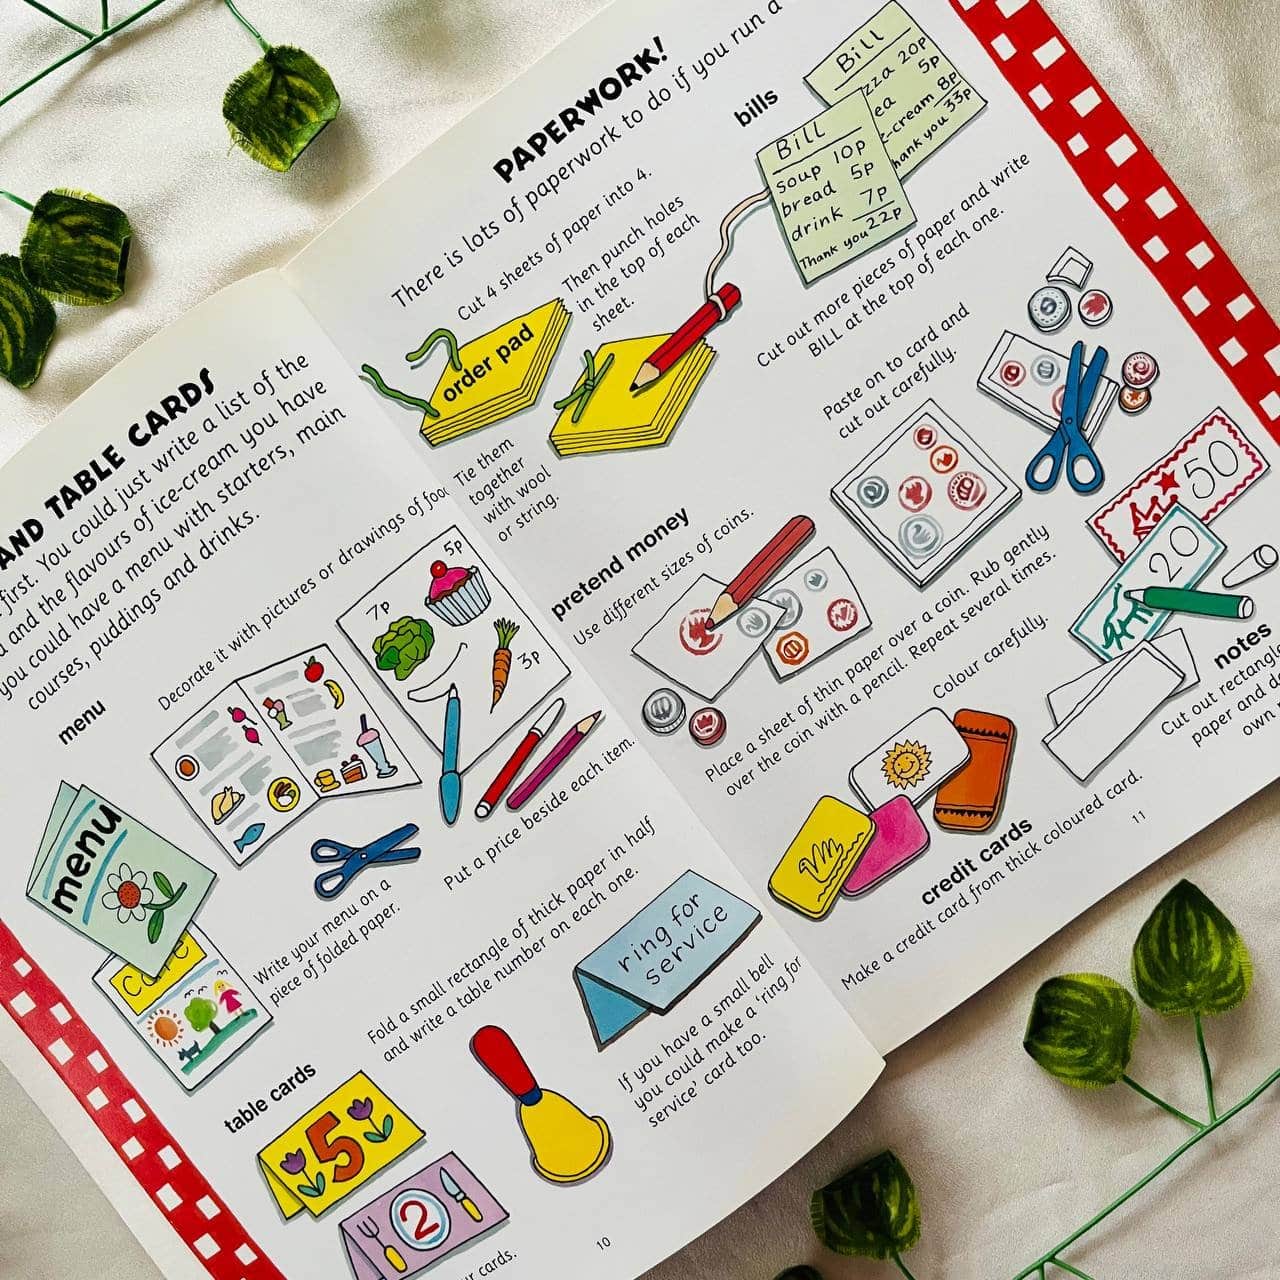 AND TABLE CARDS
first. You could just write a list of the
and the flavours of ice-cream you have
you could have a menu with starters, main
courses, puddings and drinks.
menu
Decorate it with pictures or drawings of food
7p
5p
3p
menu
Put a price beside each item.
Write your menu on a
piece of folded paper.
Fold a small rectangle of thick paper in half
and write a table number on each one.
ring for
service
If you have a small bell
you could make a 'ring for
service' card too.
table cards
5
2
cards.
10
PAPERWORK!
There is lots of paperwork to do if you run a
Cut 4 sheets of paper into 4.
Then punch holes
in the top of each
sheet.
order pad
Tie them
together
with wool
or string.
bills
Bill
20p
5p
8p
33p
Bill
soup 10p
bread 5p
drink 7p
Thank you 22p
Cut out more pieces of paper and write
BILL at the top of each one.
Paste on to card and
cut out carefully.
pretend money
Use different sizes of coins.
Place a sheet of thin paper over a coin. Rub gently
over the coin with a pencil. Repeat several times.
Colour carefully.
50
20
notes
Cut out rectangle
paper and
own
credit cards
Make a credit card from thick coloured card.
11